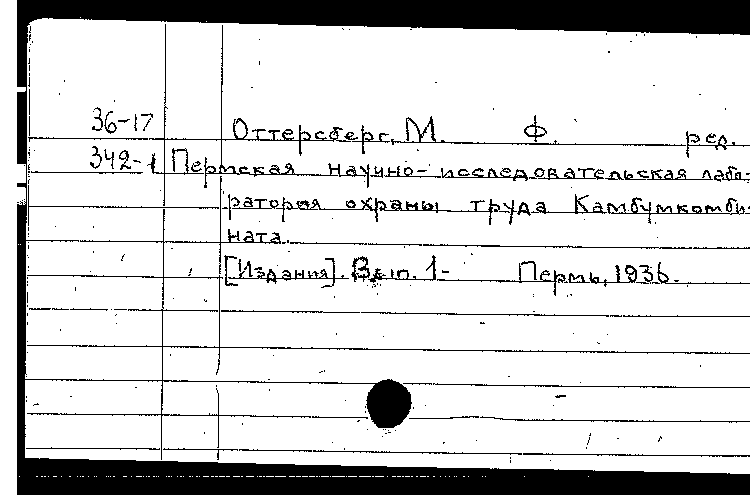 36-17 Оттерсберг, М. Ф. ред.
342-1 Пермская научно-исследовательская лабо-
раторая охраны труда Камбумкомби-
ната.
[Издания]. Вып. 1- Пермь, 1936.